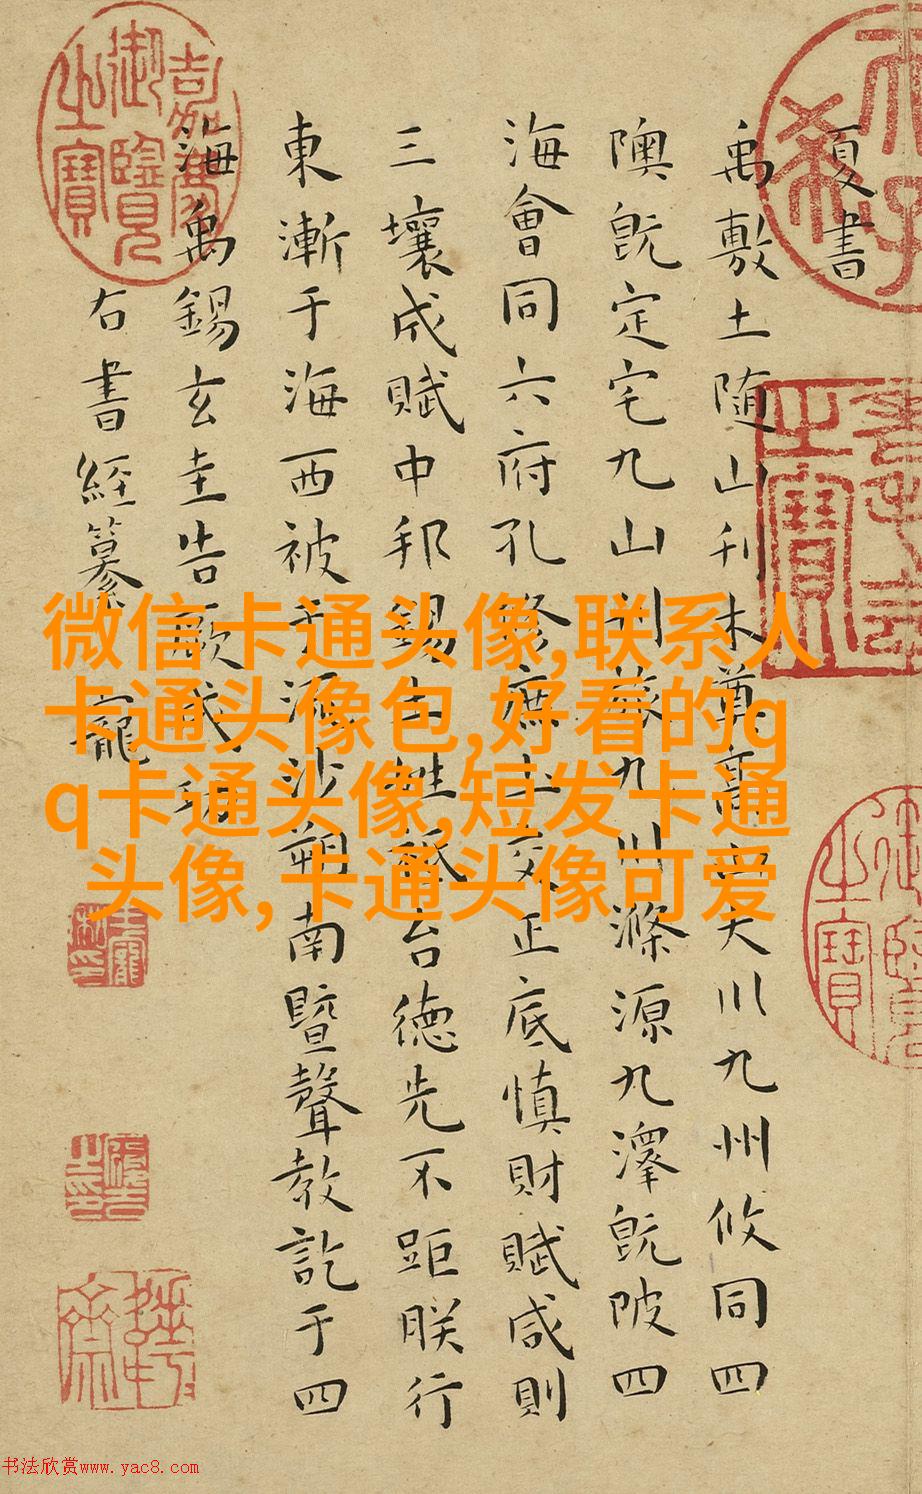 夏書
禹敷土随山刊木奠高山大川九州攸同四
隩既定宅九山刊旅九川滌源九澤既陂四
海會同六府孔修庶土交正底慎財賦咸則
三壤成賦中邦錫土姓祗台德先不距朕行
東漸于海西被于流沙朔南暨聲教訖于四
海禹錫玄圭告厥成功
右書經纂 寵
嘉慶御覽之寶
微信卡通头像,联系人
卡通头像包,好看的q
q卡通头像,短发卡通
头像,卡通头像可爱
书法欣赏www.yac8.com